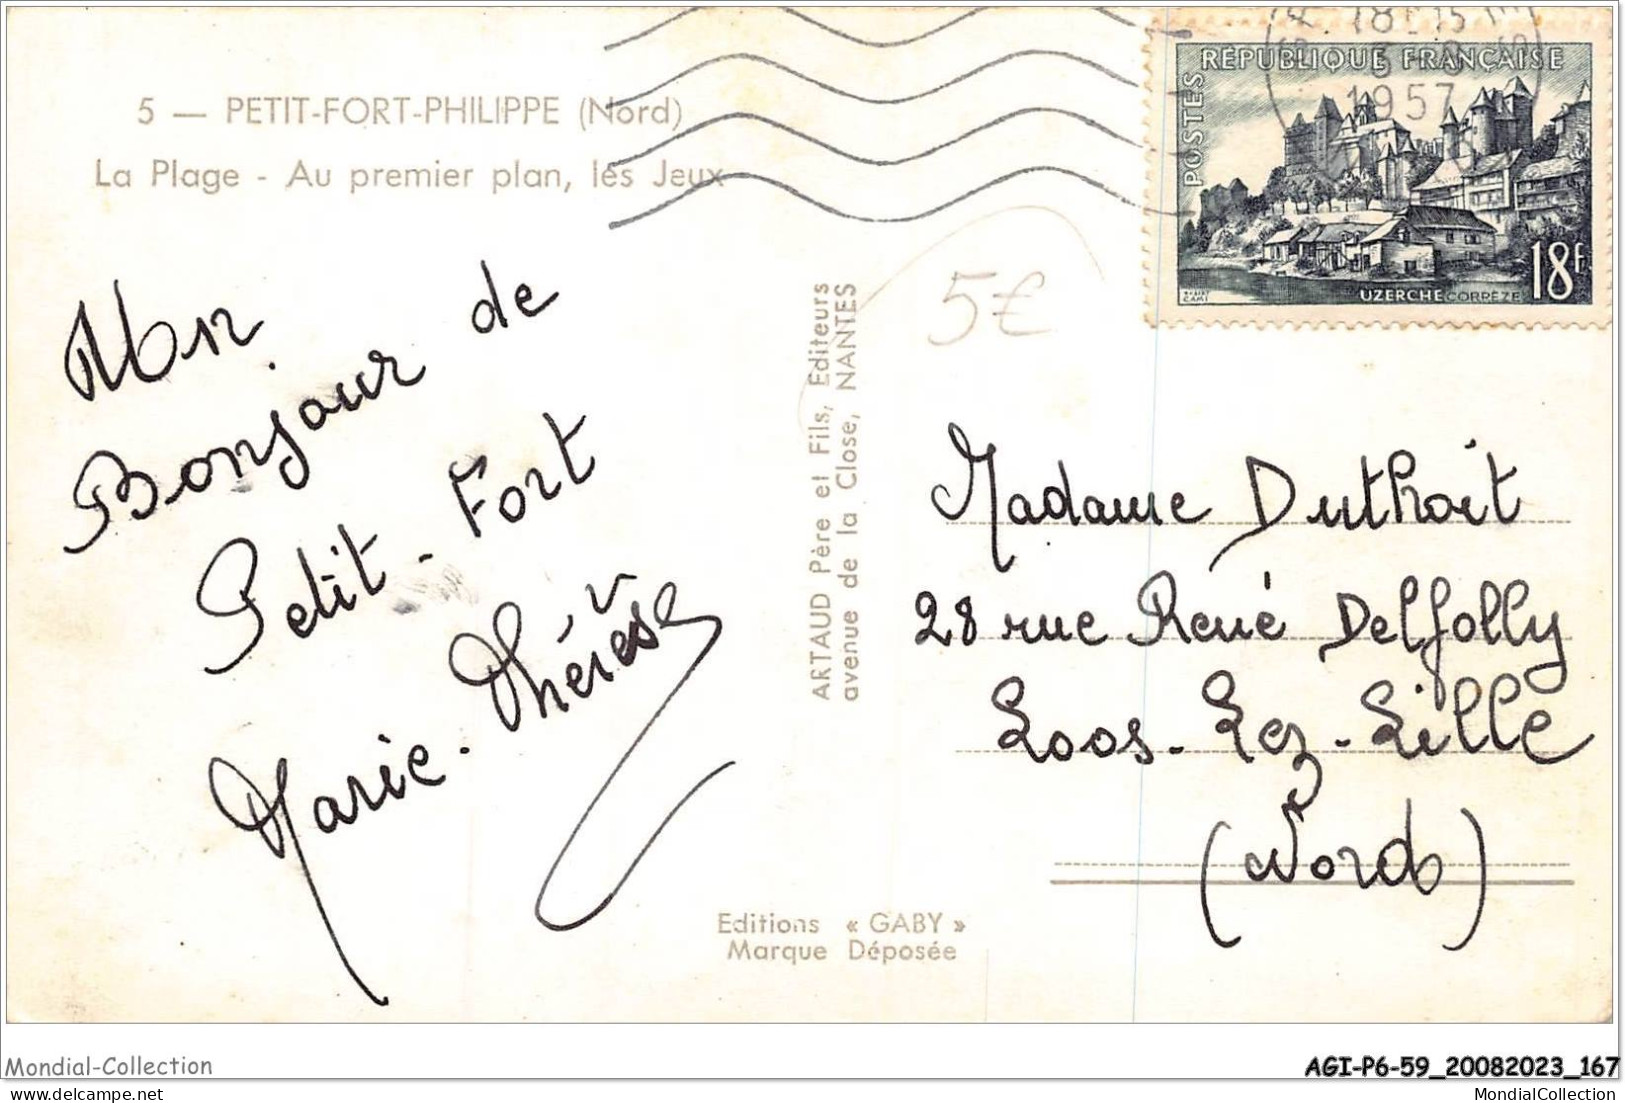 5 — PETIT-FORT-PHILIPPE (Nord)
La Plage - Au premier plan, les Jeux
Mon
Bonjour de
Petit-Fort
Marie-Thérèse
ARTAUD Père et Fils, Editeurs
avenue de la Close, NANTES
5€
18H15
1957
RÉPUBLIQUE FRANÇAISE
POSTES
UZERCHE CORRÈZE
18F
Madame Duthoit
28 rue René Delfolly
Loos-Lez-Lille
(Nord)
Editions « GABY »
Marque Déposée
Mondial-Collection
AGI-P6-59_20082023_167
delcampe.net
MondialCollection